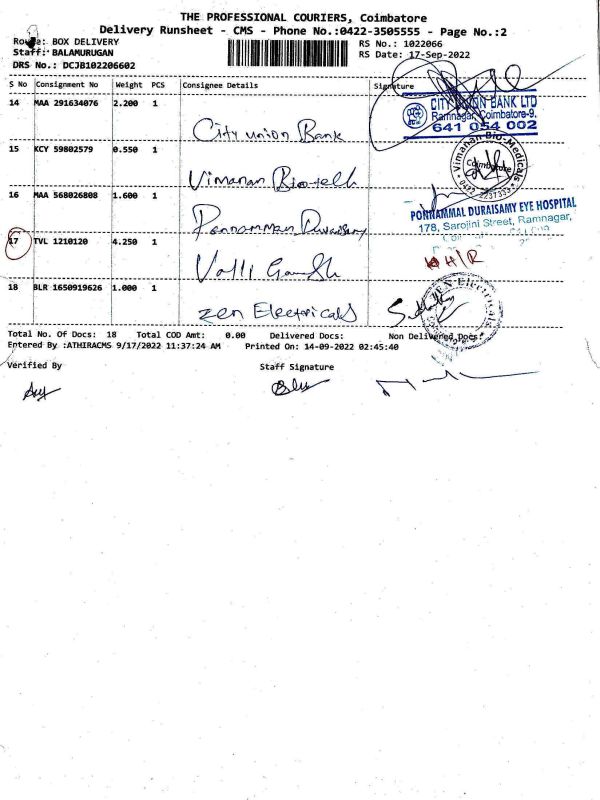 THE PROFESSIONAL COURIERS, Coimbatore
Delivery Runsheet - CMS - Phone No.:0422-3505555 - Page No.:2
Route: BOX DELIVERY
RS No.: 1022066
Staff: BALAMURUGAN
RS Date: 17-Sep-2022
DRS No.: DCJB102206602
S No Consignment No Weight PCS Consignee Details Signature
14 MAA 291634076 2.200 1
City union Bank
CITY UNION BANK LTD
Ramnagar, Coimbatore-9.
641 054 002
15 KCY 59802579 0.550 1
Vimanan Bio-tech
Vimanan Bio-Medicals
Coimbatore
0422 2237333
16 MAA 568026808 1.600 1
Ponnamman Duraisamy
PONNAMMAL DURAISAMY EYE HOSPITAL
178, Sarojini Street, Ramnagar,
17 TVL 1210120 4.250 1
Valli
H/R
18 BLR 1650919626 1.000 1
Zen Electricals
ZEN Electricals
Total No. Of Docs: 18 Total COD Amt: 0.00 Delivered Docs: Non Delivered Docs:
Entered By :ATHIRACMS 9/17/2022 11:37:24 AM Printed On: 14-09-2022 02:45:40
Verified By
Staff Signature